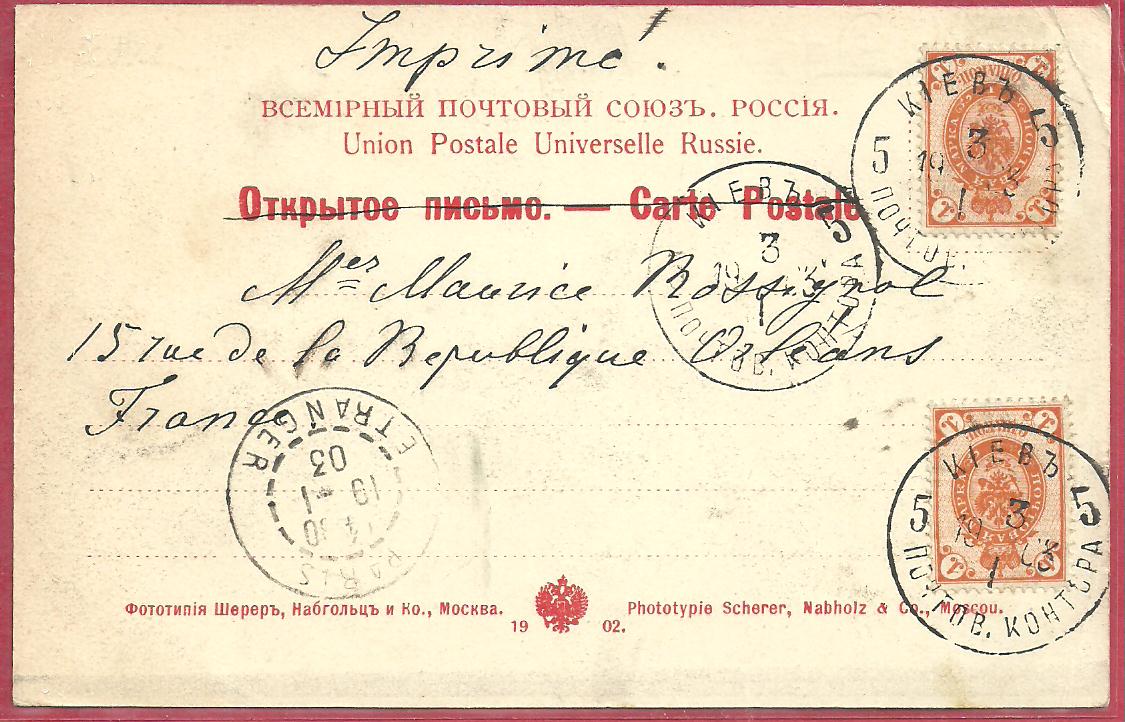 Imprimé!
ВСЕМІРНЫЙ ПОЧТОВЫЙ СОЮЗЪ. РОССІЯ.
Union Postale Universelle Russie.
Открытое письмо. — Carte Postale
Mes Maurice Rossignol
15 rue de la Republique Orleans
France
КІЕВЪ 5
5 ПОЧТОВ.
3
1903
1
КІЕВЪ 5
ПОЧТОВ. КОНТОРА
3
1903
1
КІЕВЪ 5
5 ПОЧТОВ. КОНТОРА
3
1903
1
PARIS
ETRANGER
19 -1
03
Фототипія Шереръ, Набгольцъ и Ко., Москва.
Phototypie Scherer, Nabholz & Co., Moscou.
1902.